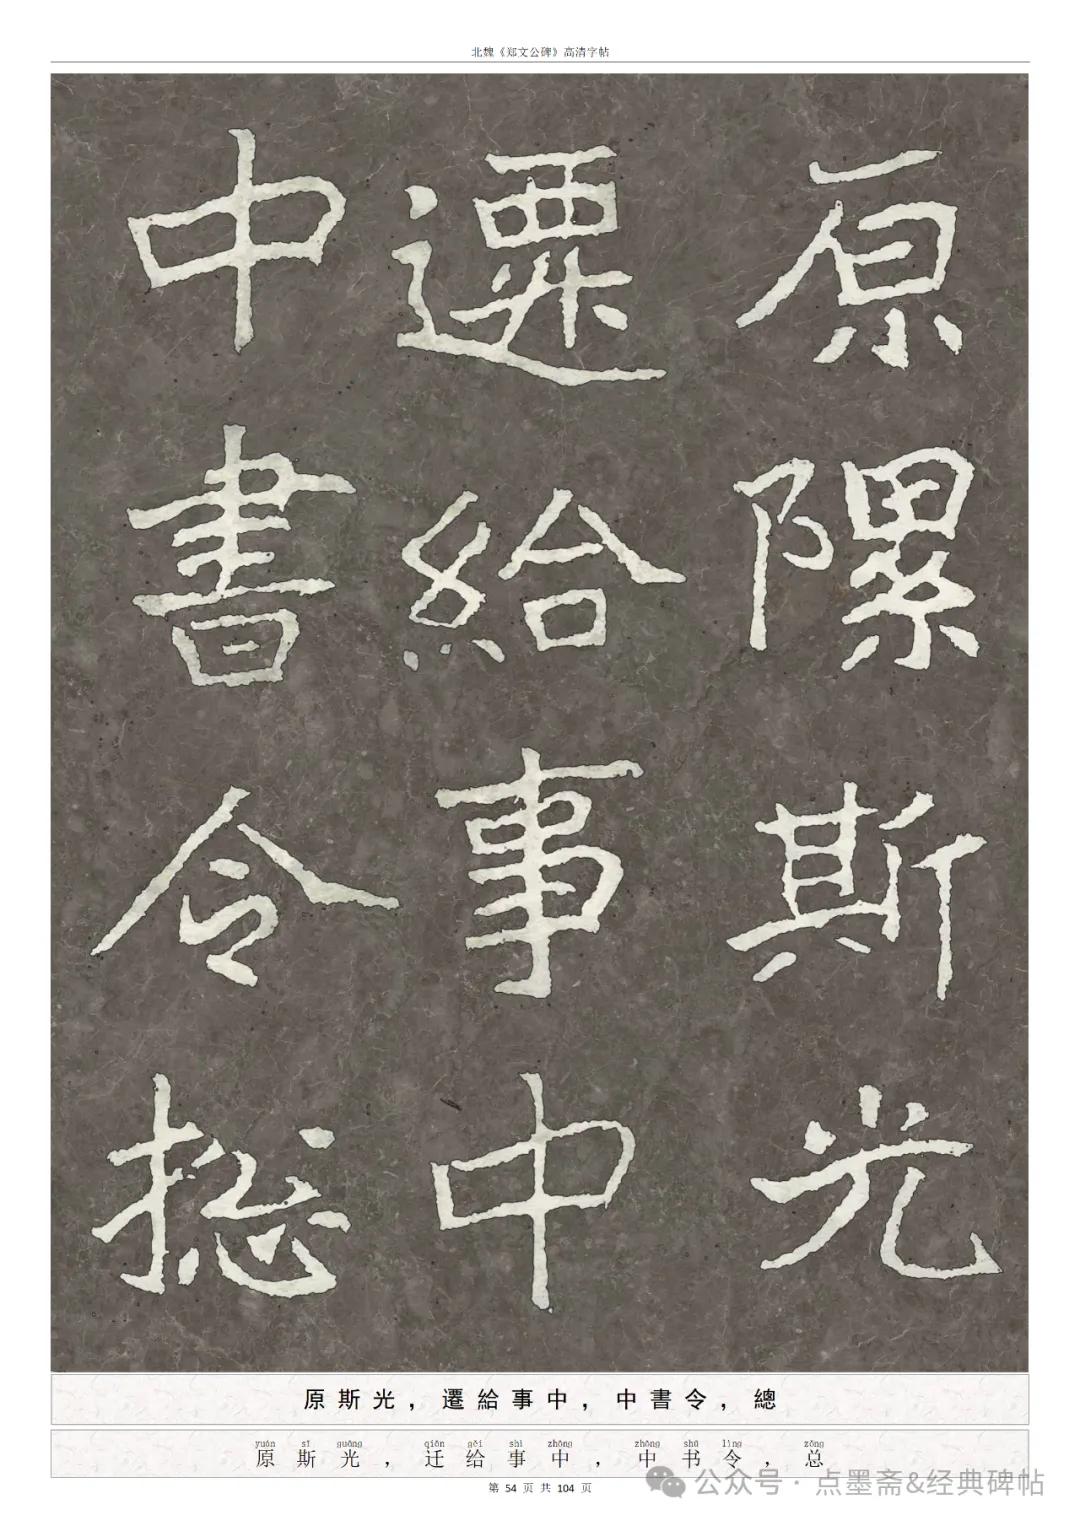 北魏《郑文公碑》高清字帖
原隰斯光
遷給事中
中書令總
原斯光，遷給事中，中書令，總
yuán sī guāng qiān gěi shì zhōng zhōng shū lìng zǒng
原斯光，迁给事中，中书令，总
第 54 页 共 104 页
公众号·点墨斋&经典碑帖